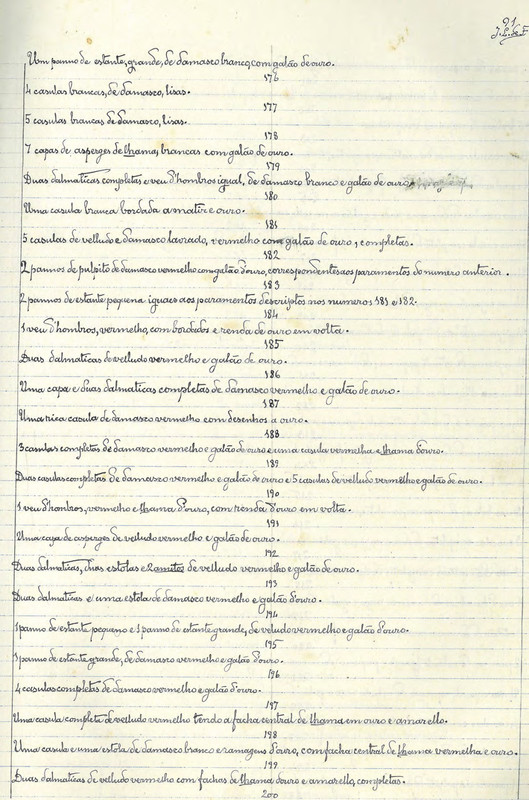 21
Um panno de estante, grande, de damasco branco, com galão de ouro.
176
4 casulas brancas, de damasco, lisas.
177
5 casulas brancas de damasco, lisas.
178
7 capas de asperges de lhama, brancas com galão de ouro.
179
Duas dalmaticas completas e veu d'hombros igual, de damasco branco e galão de ouro
180
Uma casula branca, bordada a matiz e ouro.
181
5 casulas de velludo e damasco lavrado, vermelho com galão de ouro, completas.
182
2 pannos de pulpito de damasco vermelho com galão d'ouro, correspondentes aos paramentos do numero anterior.
183
2 pannos de estante pequena iguaes aos paramentos descriptos nos numeros 181 e 182.
184
1 veu d'hombros, vermelho, com bordados e renda de ouro em volta.
185
Duas dalmaticas de velludo vermelho e galão de ouro.
186
Uma capa e duas dalmaticas completas de damasco vermelho e galão de ouro.
187
Uma rica casula de damasco vermelho com desenhos a ouro.
188
3 casulas completas de damasco vermelho e galão de ouro e uma casula vermelha e lhama d'ouro.
189
Duas casulas completas de damasco vermelho e galão de ouro e 5 casulas de velludo vermelho e galão de ouro.
190
1 veu d'hombros, vermelho e lhama d'ouro, com renda d'ouro em volta.
191
Uma capa de asperges de velludo vermelho e galão de ouro.
192
Duas dalmaticas, duas estolas e 2 amitos de velludo vermelho e galão de ouro.
193
Duas dalmaticas e uma estola de damasco vermelho e galão d'ouro.
194
1 panno de estante pequeno e 1 panno de estante grande, de veludo vermelho e galão d'ouro.
195
1 panno de estante grande, de damasco vermelho e galão d'ouro.
196
4 casulas completas de damasco vermelho e galão d'ouro.
197
Uma casula completa de velludo vermelho tendo a facha central de lhama em ouro e amarello.
198
Uma casula e uma estola de damasco branco e ramagens d'ouro, com facha central de lhama vermelha e ouro.
199
Duas dalmaticas de velludo vermelho com fachas de lhama d'ouro e amarello, completas.
200